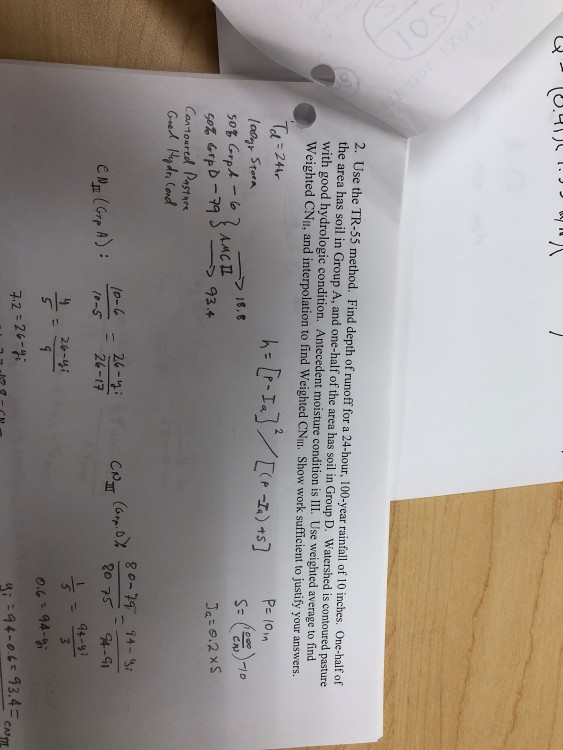 2. Use the TR-55 method. Find depth of runoff for a 24-hour, 100-year rainfall of 10 inches. One-half of
the area has soil in Group A, and one-half of the area has soil in Group D. Watershed is contoured pasture
with good hydrologic condition. Antecedent moisture condition is III. Use weighted average to find
Weighted CNII, and interpolation to find Weighted CNIII. Show work sufficient to justify your answers.
Td = 24hr
100yr Storm
50% Grp A - 6 } AMC II → 18.8
50% Grp D - 79 → 93.4
Contoured Pasture
Good Hydr. Cond
h = [P-Ia]² / [(P-Ia)+S]
P = 10in
S = (1000/CN) - 10
Ia = 0.2 x S
CN III (Grp A) :
10-6/10-5 = 26-yi/26-17
4/5 = 26-yi/9
7.2 = 26-yi
CN III (Grp. D)
80-79/80-75 = 94-yi/94-91
1/5 = 94-yi/3
0.6 = 94-yi
yi = 94-0.6 = 93.4 = CN III